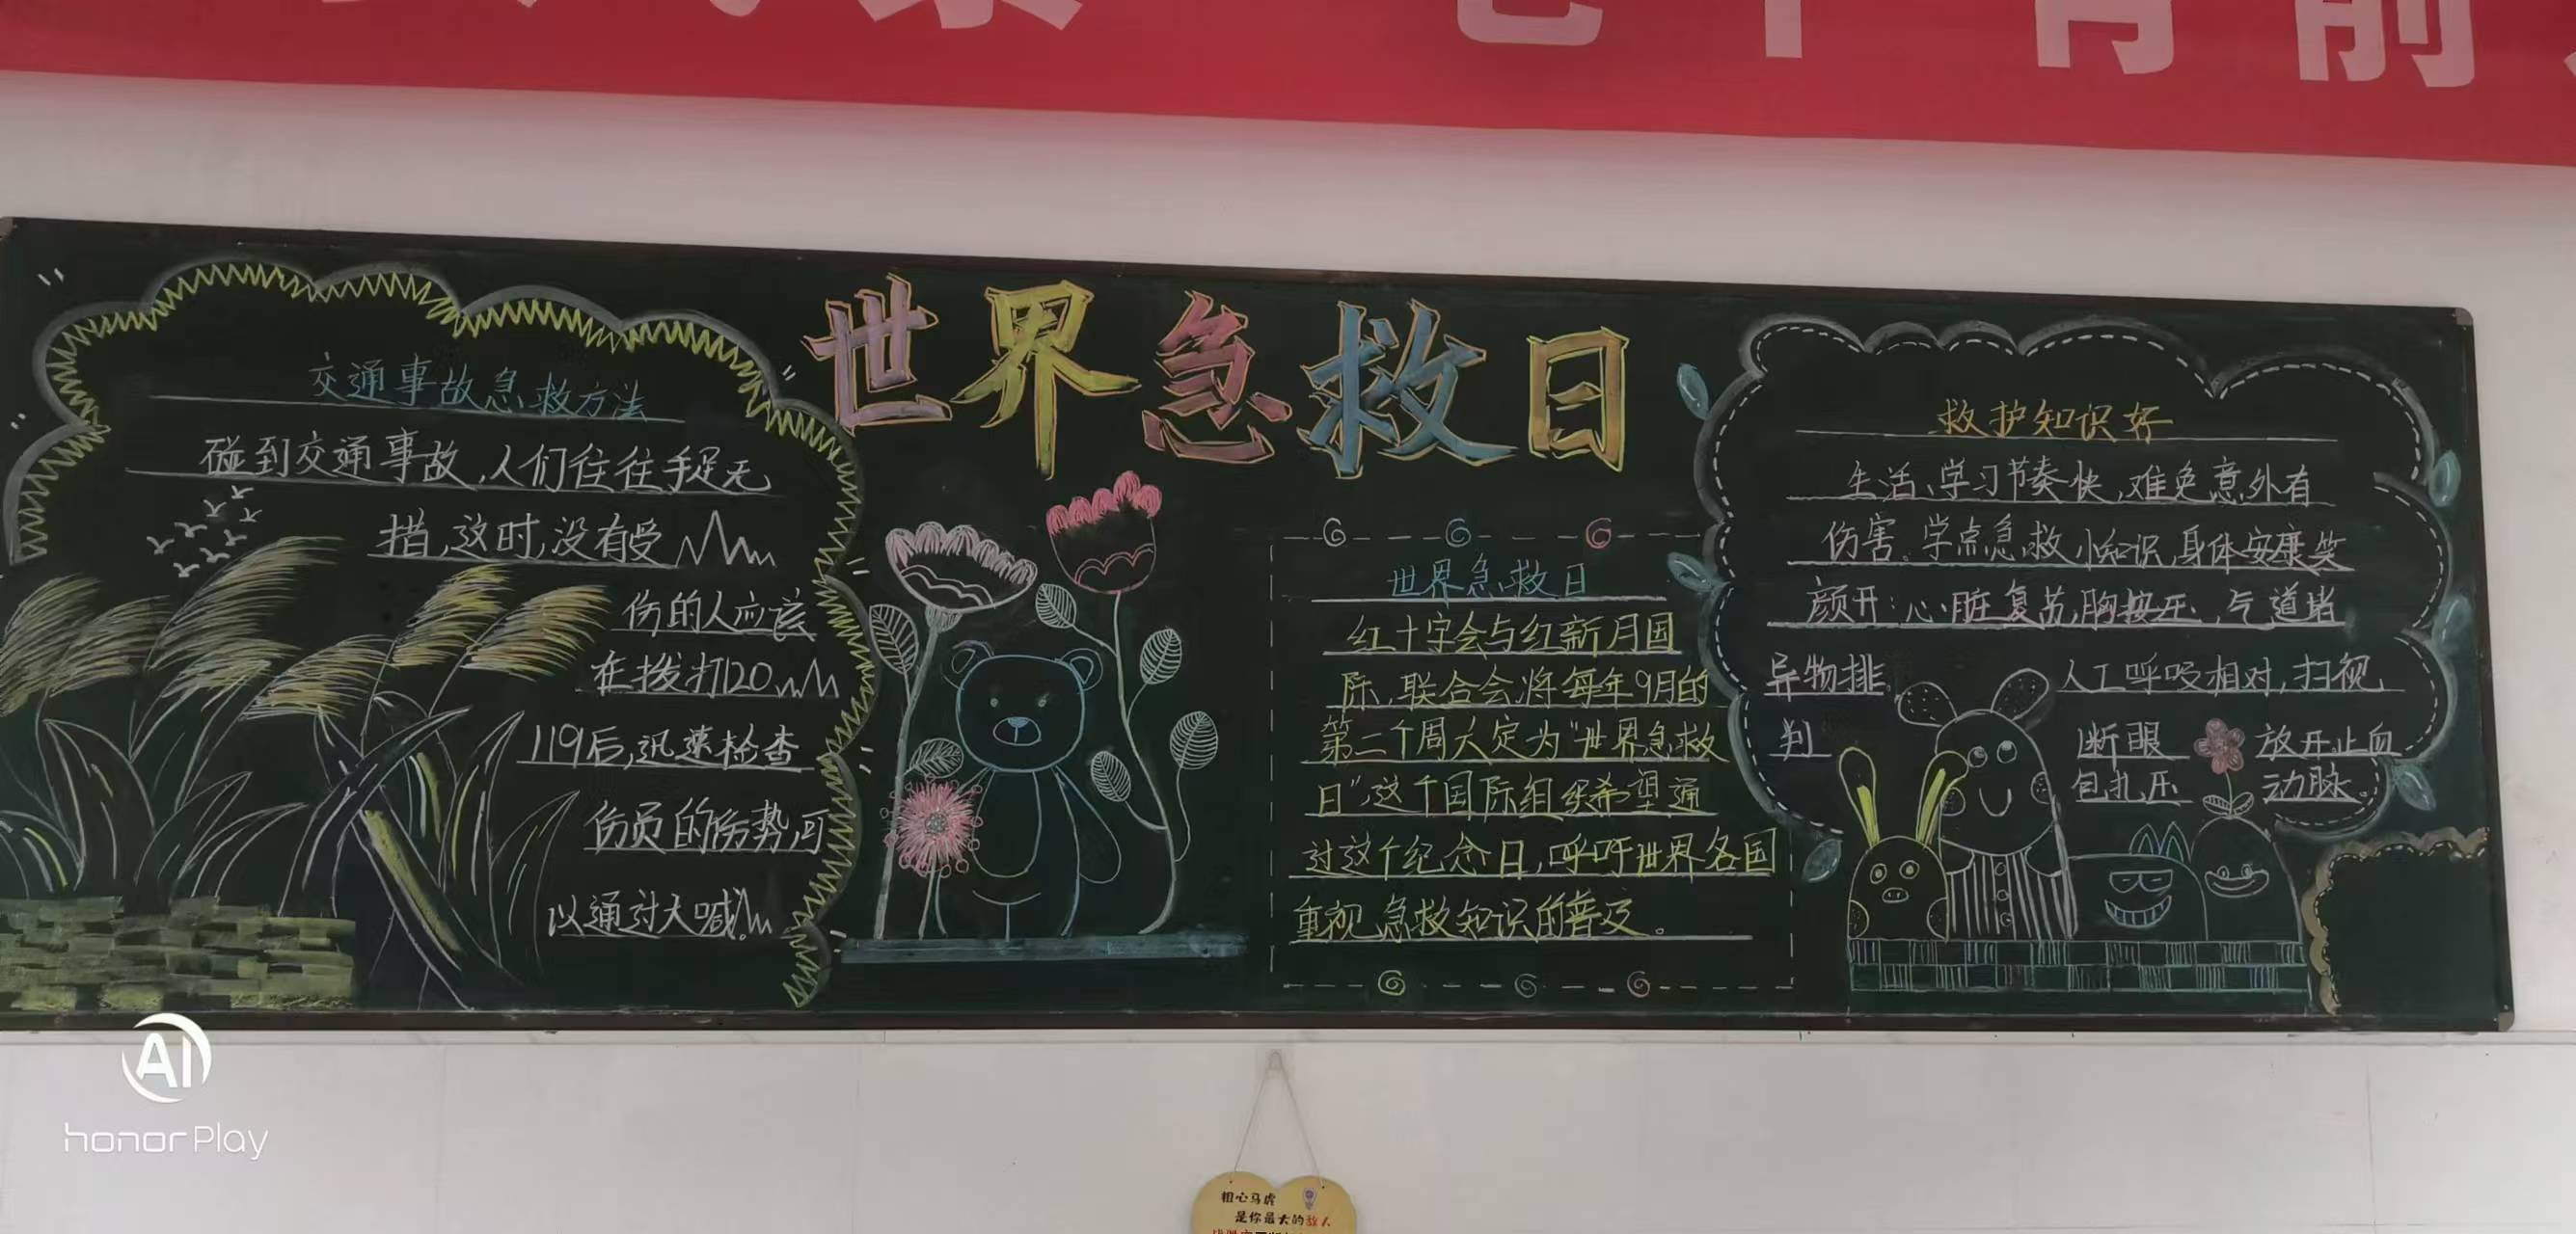 世界急救日
交通事故急救方法
碰到交通事故,人们往往手足无
措,这时,没有受
伤的人应该
在拨打120
119后,迅速检查
伤员的伤势,可
以通过大喊。
世界急救日
红十字会与红新月国
际联合会将每年9月的
第二个周六定为"世界急救
日",这个国际组织希望通
过这个纪念日,呼吁世界各国
重视急救知识的普及。
救护知识好
生活、学习节奏快,难免意外有
伤害。学点急救小知识,身体安康笑
颜开:心脏复苏胸按压,气道堵
异物排。 人工呼吸相对,扫视
判断眼 放开止血
包扎压 动脉。
AI
honor Play
粗心马虎
是你最大的敌人